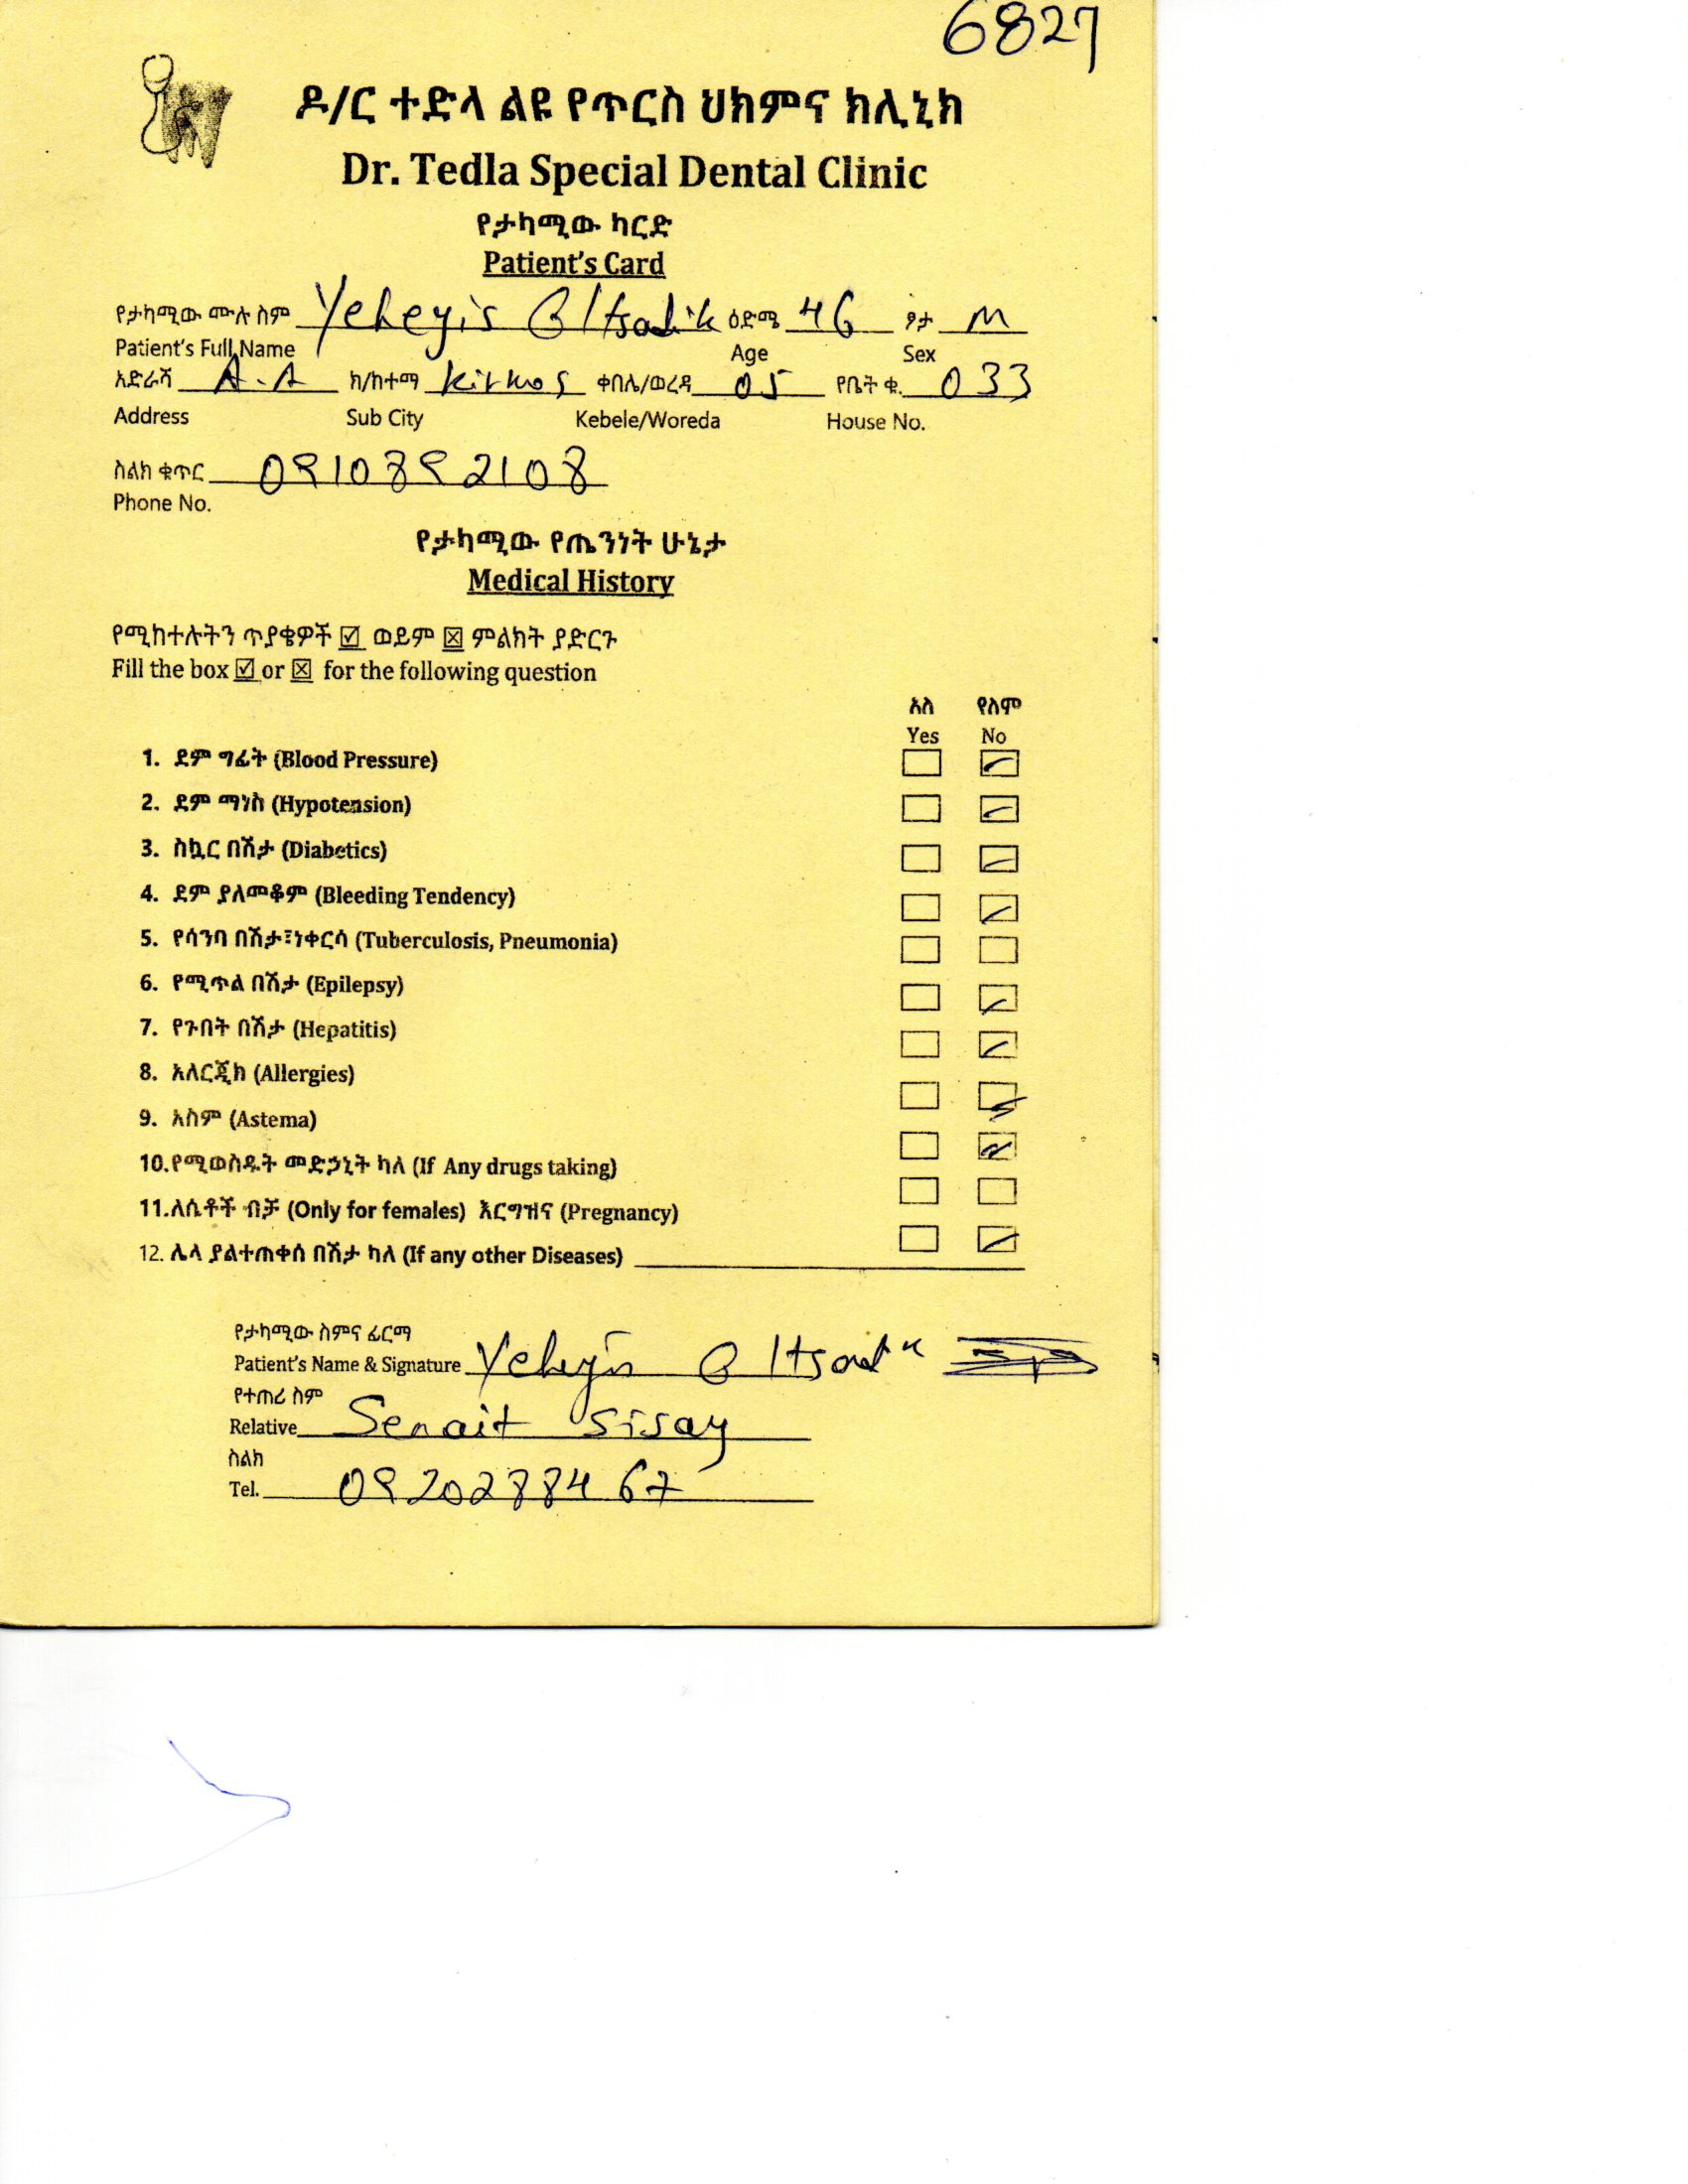 6827
ዶ/ር ተድላ ልዩ የጥርስ ህክምና ክሊኒክ
Dr. Tedla Special Dental Clinic
የታካሚው ካርድ
Patient's Card
የታካሚው ሙሉ ስም Yeheyis G/tsadik ዕድሜ 46 ፆታ M
Patient's Full Name Age Sex
አድራሻ A.A ክ/ከተማ Kirkos ቀበሌ/ወረዳ 05 የቤት ቁ. 033
Address Sub City Kebele/Woreda House No.
ስልክ ቁጥር 0910892108
Phone No.
የታካሚው የጤንነት ሁኔታ
Medical History
የሚከተሉትን ጥያቄዎች ☑ ወይም ☒ ምልክት ያድርጉ
Fill the box ☑ or ☒ for the following question
አለ የለም
Yes No
1. ደም ግፊት (Blood Pressure)
2. ደም ማነስ (Hypotension)
3. ስኳር በሽታ (Diabetics)
4. ደም ያለመቆም (Bleeding Tendency)
5. የሳንባ በሽታ፣ነቀርሳ (Tuberculosis, Pneumonia)
6. የሚጥል በሽታ (Epilepsy)
7. የጉበት በሽታ (Hepatitis)
8. አለርጂክ (Allergies)
9. አስም (Astema)
10.የሚወስዱት መድኃኒት ካለ (If Any drugs taking)
11.ለሴቶች ብቻ (Only for females) እርግዝና (Pregnancy)
12. ሌላ ያልተጠቀሰ በሽታ ካለ (If any other Diseases)
የታካሚው ስምና ፊርማ
Patient's Name & Signature Yeheyis G/tsadik
የተጠሪ ስም
Relative Senait Sisay
ስልክ
Tel. 0920288467